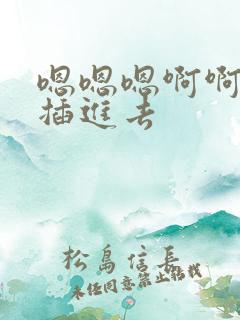 嗯嗯嗯啊啊
插进去
松岛信长
未经同意禁止转载